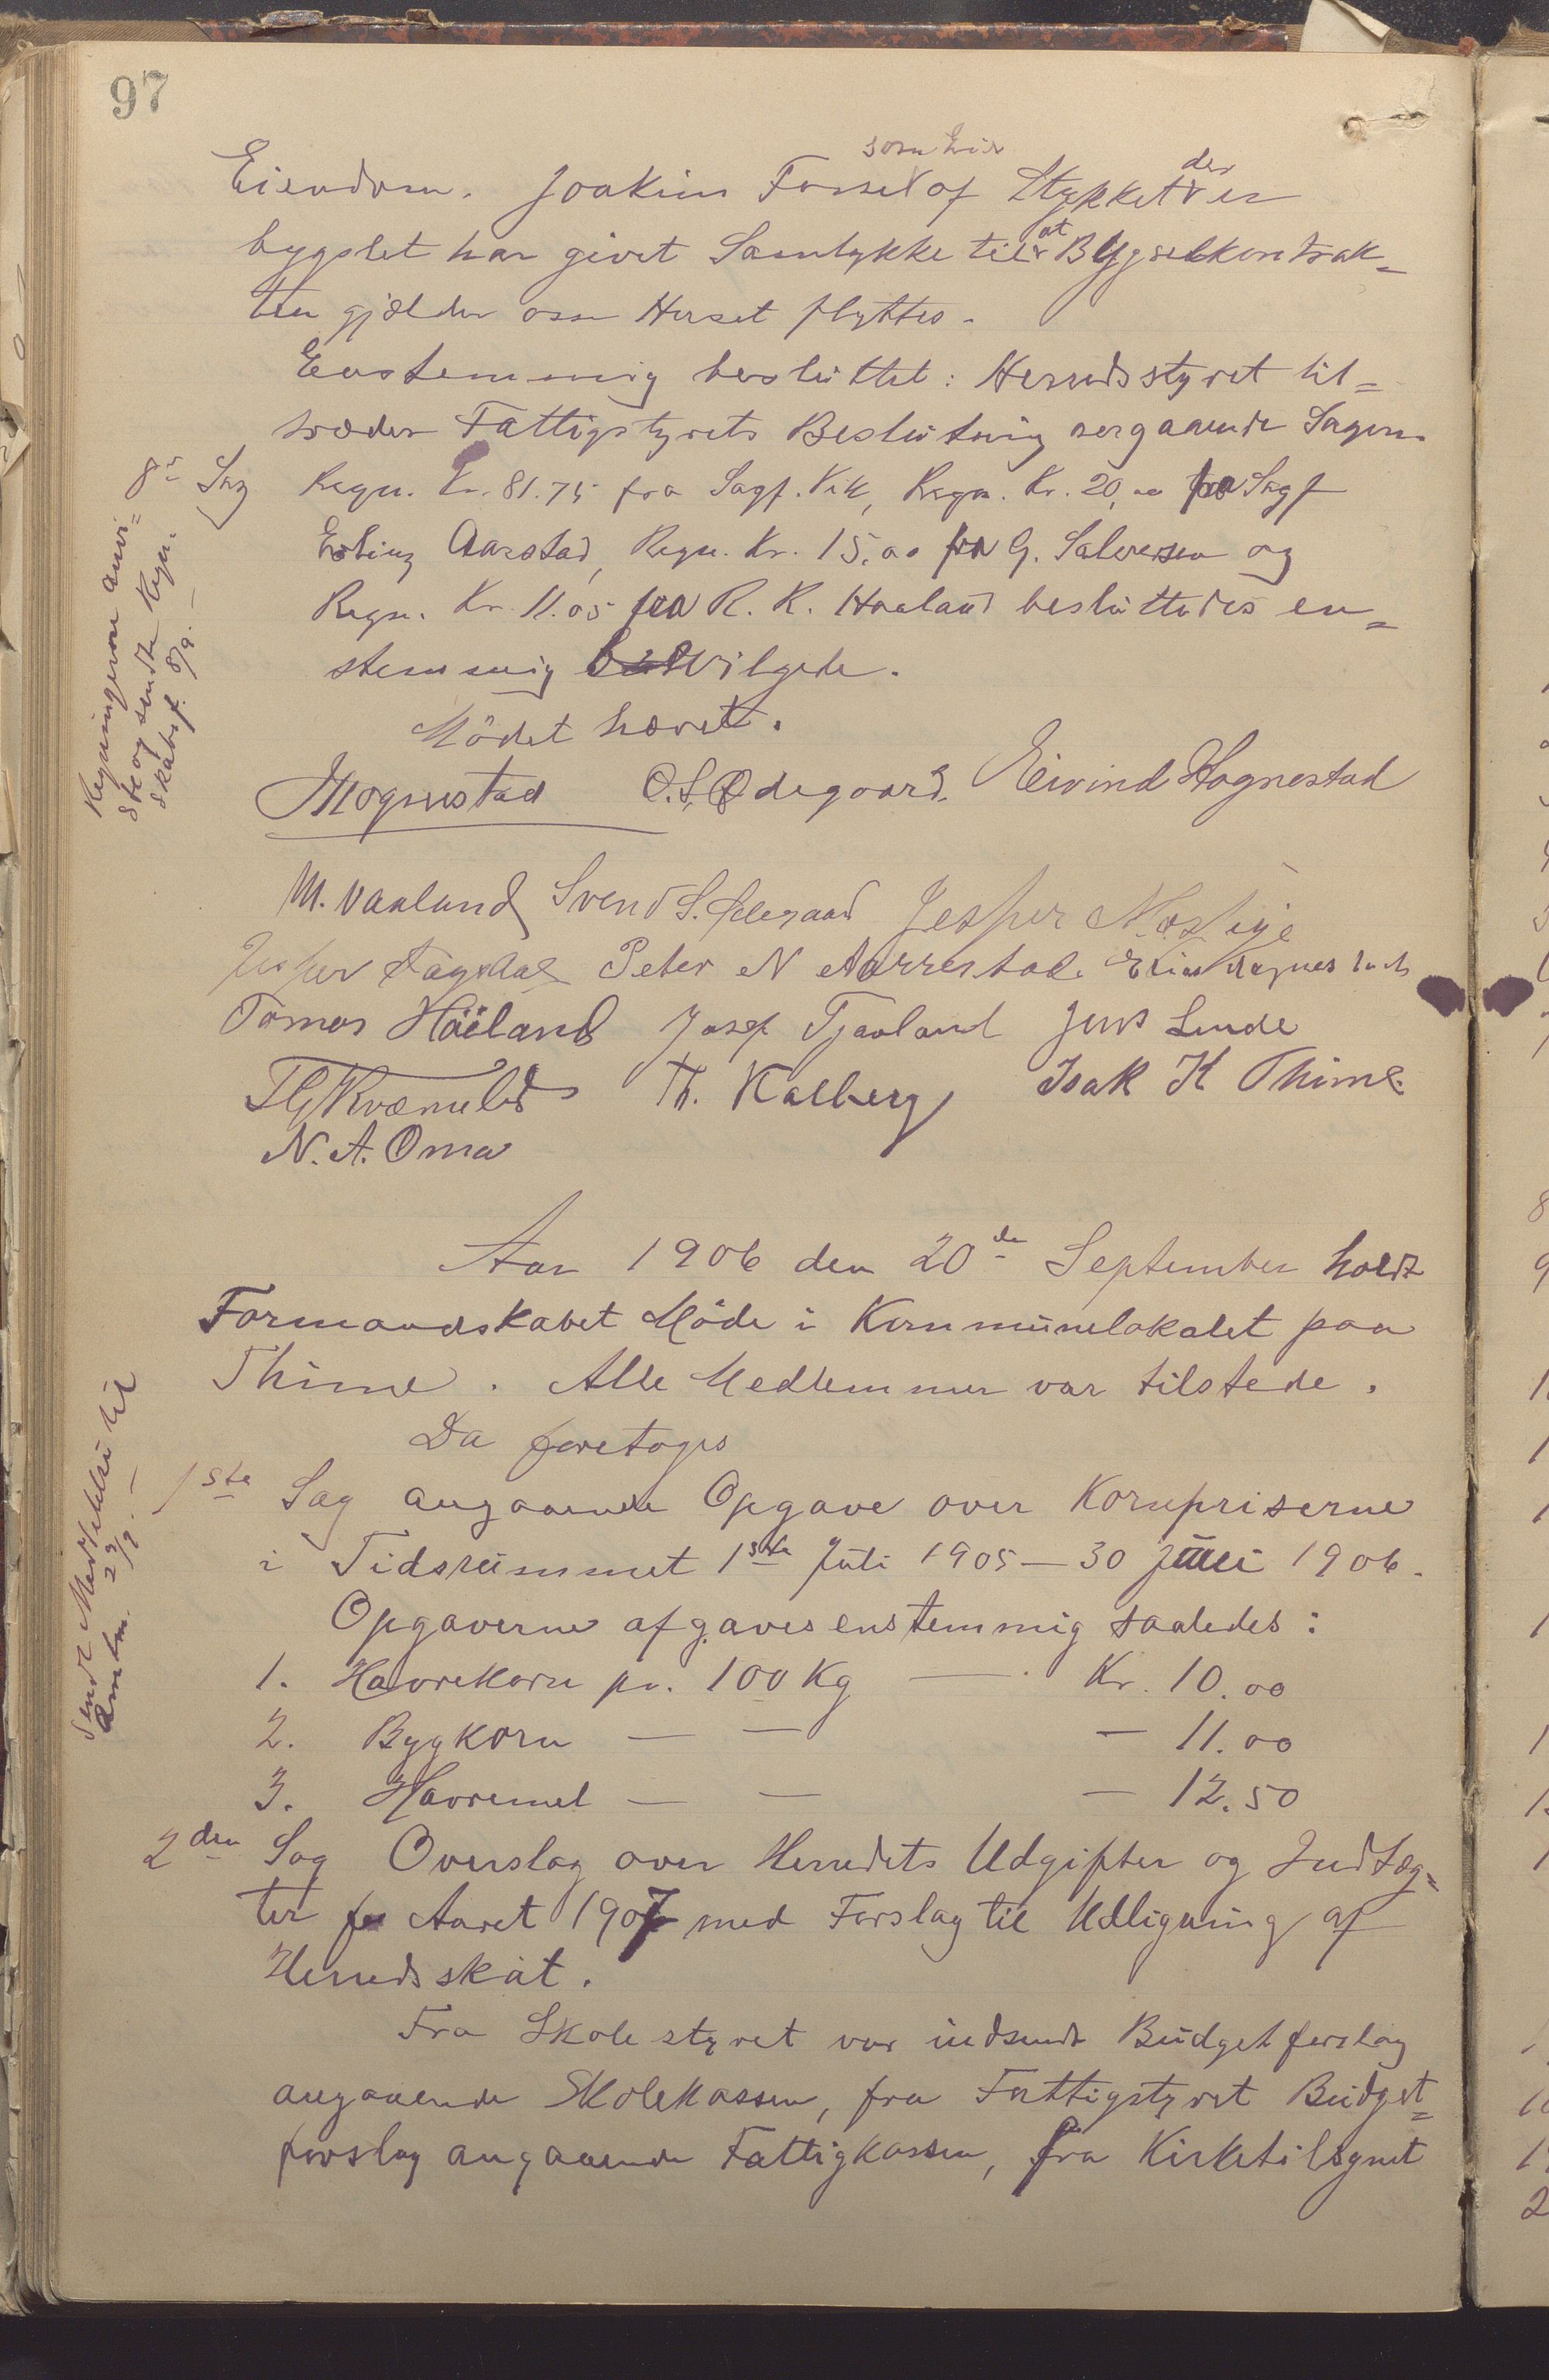 97
Eiendom. Joakim Fosse som Eier af Stykket der er
bygslet har givet Samtykke til at Bygselkontrak=
ten gjælder om Huset flyttes.
Enstemmig besluttet: Herredsstyret til=
træder Fattigstyrets Beslutning angaaende Sagen.
8de Sag Regn. Kr. 81.75 fra Sagf. Vik, Regn. Kr. 20,00 fra Sagf
Erling Aarstad, Regn. Kr. 15.00 fra G. Salvesen og
Regn. Kr. 11.05 fra R. K. Haaland besluttedes en=
stemmig bevilgede.
Regningerne anvi=
ste og sendte Regn=
skabsf. 8/9. —
Mödet hævet.
Hognestad O. S. Ødegaard. Eivind Hognestad
M. Vaaland Svend S. Ødegaard Jesper Næshye
Jesper Fagsdal Peter N Aarrestad. Elias Hognestad
Tomas Håland Josef Tjaaland Jens Lende
Th. Kalberg Isak K Thime.
N. A. Oma
Aar 1906 den 20de September holdt
Formandskabet Möde i Kommunelokalet paa
Thime. Alle Medlemmer var tilstede.
Da foretoges
1ste Sag angaaende Opgave over Kornpriserne
i Tidsrummet 1ste Juli 1905 — 30 Juni 1906.
Opgaverne afgaves enstemmig saaledes:
Sendt Meddelelse til
Amtm. 23/9. —
1. Havrekorn pr. 100 Kg — Kr. 10.00
2. Bygkorn — — — 11.00
3. Havremel — — — 12.50
2den Sag Overslag over Herredets Udgifter og Indtæg=
ter for Aaret 1907 med Forslag til Udligning af
Herredsskat.
Fra Skolestyret var indsendt Budgetforslag
angaaende Skolekassen, fra Fattigstyret Budget=
forslag angaaende Fattigkassen, fra Kirketilsynet